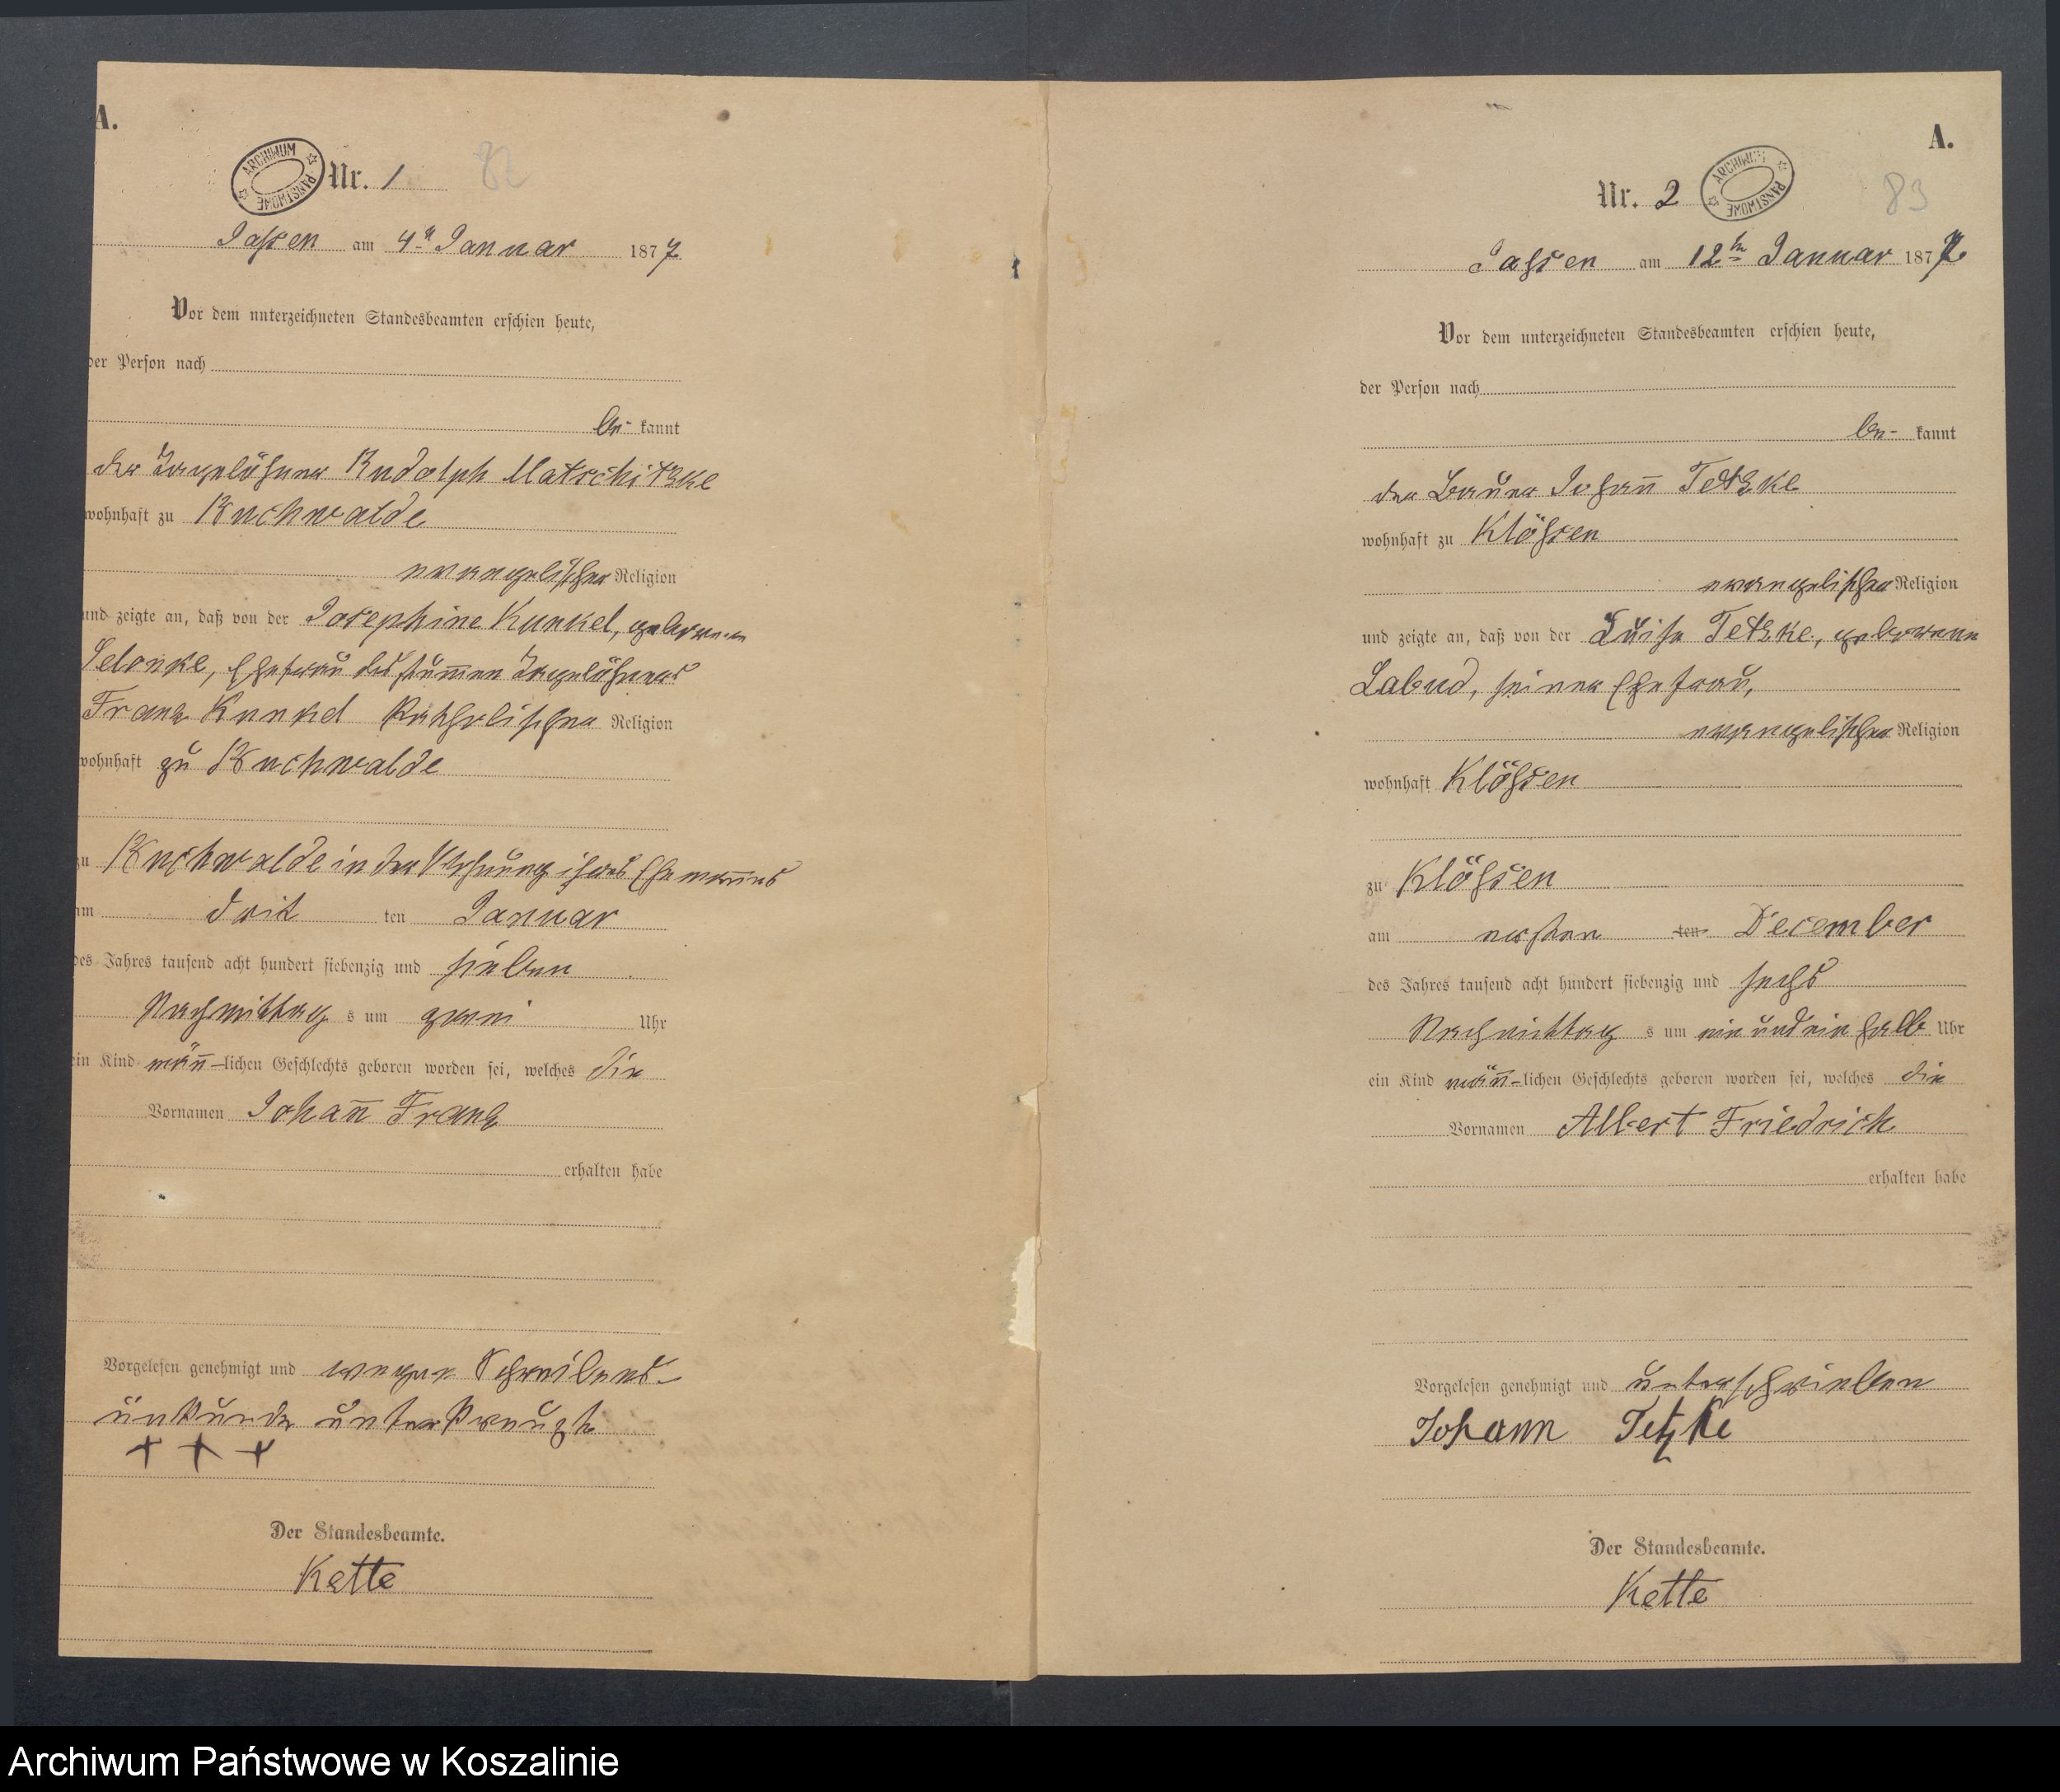 A.
ARCHIWUM PAŃSTWOWE
Nr. 1 82
Jassen am 4ten Januar 1877
Vor dem unterzeichneten Standesbeamten erschien heute,
der Person nach
be- kannt
der Tagelöhner Rudolph Matschitzke
wohnhaft zu Buchwalde
evangelischer Religion
und zeigte an, daß von der Josephine Kunkel, geborenen
Selonke, Ehefrau des stummen Tagelöhners
Franz Kunkel katholischer Religion
wohnhaft zu Buchwalde
zu Buchwalde in der Wohnung ihres Ehemanns
am drit ten Januar
des Jahres tausend acht hundert siebenzig und sieben
Nachmittag s um zwei Uhr
ein Kind män̄-lichen Geschlechts geboren worden sei, welches die
Vornamen Johan̄ Franz
erhalten habe
Vorgelesen genehmigt und wegen Schreibens-
unkunde unterkreuzt
+ + +
Der Standesbeamte.
Kette
A.
Nr. 2 ARCHIWUM PAŃSTWOWE 83
Jassen am 12ten Januar 1877
Vor dem unterzeichneten Standesbeamten erschien heute,
der Person nach
be- kannt
der Bauer Johan̄ Tetzke
wohnhaft zu Klössen
evangelischer Religion
und zeigte an, daß von der Luise Tetzke, geborenen
Labud, seiner Ehefrau,
evangelischer Religion
wohnhaft Klössen
zu Klössen
am ersten ten December
des Jahres tausend acht hundert siebenzig und sechs
Nachmittag s um ein und ein halb Uhr
ein Kind män̄-lichen Geschlechts geboren worden sei, welches die
Vornamen Albert Friedrich
erhalten habe
Vorgelesen genehmigt und unterschrieben
Johann Tetzke
Der Standesbeamte.
Kette
Archiwum Państwowe w Koszalinie